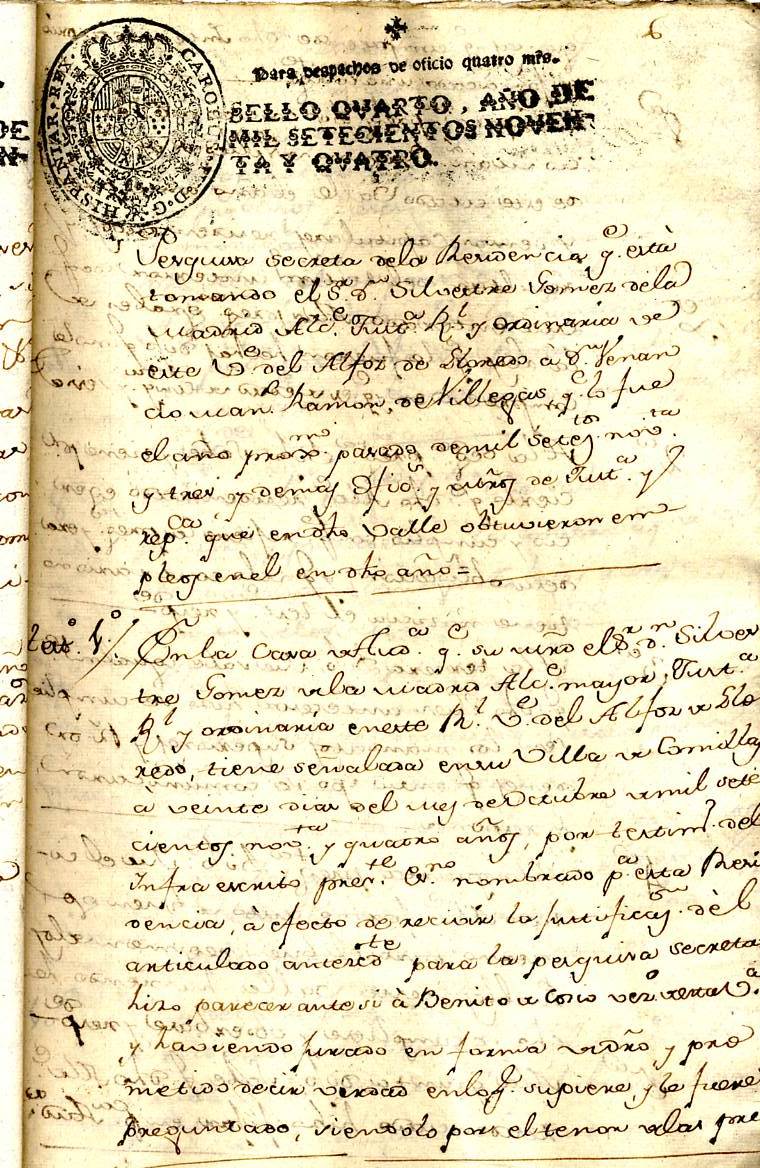 6
CAROLUS IV D. G. HISPANIAR. REX
Para despachos de oficio quatro mrs.
SELLO QVARTO, AÑO DE
MIL SETECIENTOS NOVEN-
TA Y QVATRO.
Pesquisa secreta dela Residencia q.e está
tomando el S.r d.n Silvestre Gomez dela
Madrid Alc.e Just.a R.l y ordinaria de
este V.e del Alfoz de Lloredo à d.n Venan
cio Man.l Ramon, de Villegas, q.e lo fue
el año prox.mo pasado demil setec.tos nov.ta
y tres y demas ofic.s y de Just.a y
rep.ca que en dho Valle obtuvieron em-
pleos en el en dho año =
tgo. 1.º En la Casa de Aud.a q.e su mrd el S.r d.n Silves
tre Gomez dela Madrid Alc.e mayor, Just.a
R.l y ordinaria eneste R.l V.e del Alfoz de Llo
redo, tiene señalada en su Villa de Comillas
à veinte dias del mes de Octubre de mil sete
cientos nov.ta y quatro años, por testim.o del
infra escrito pres.te Es.no nombrado p.a esta Resi
dencia, à efecto de recivir la justificaz.on dèl
articulado anteced.te para la pesquisa secreta
hizo parecer ante si à Benito de Cosio vez.o desta V.a
y haviendo jurado en forma de dro y pro
metido decir verdad enlo q.e supiere, y le fuere
preguntado, siendolo por el tenor delas pre